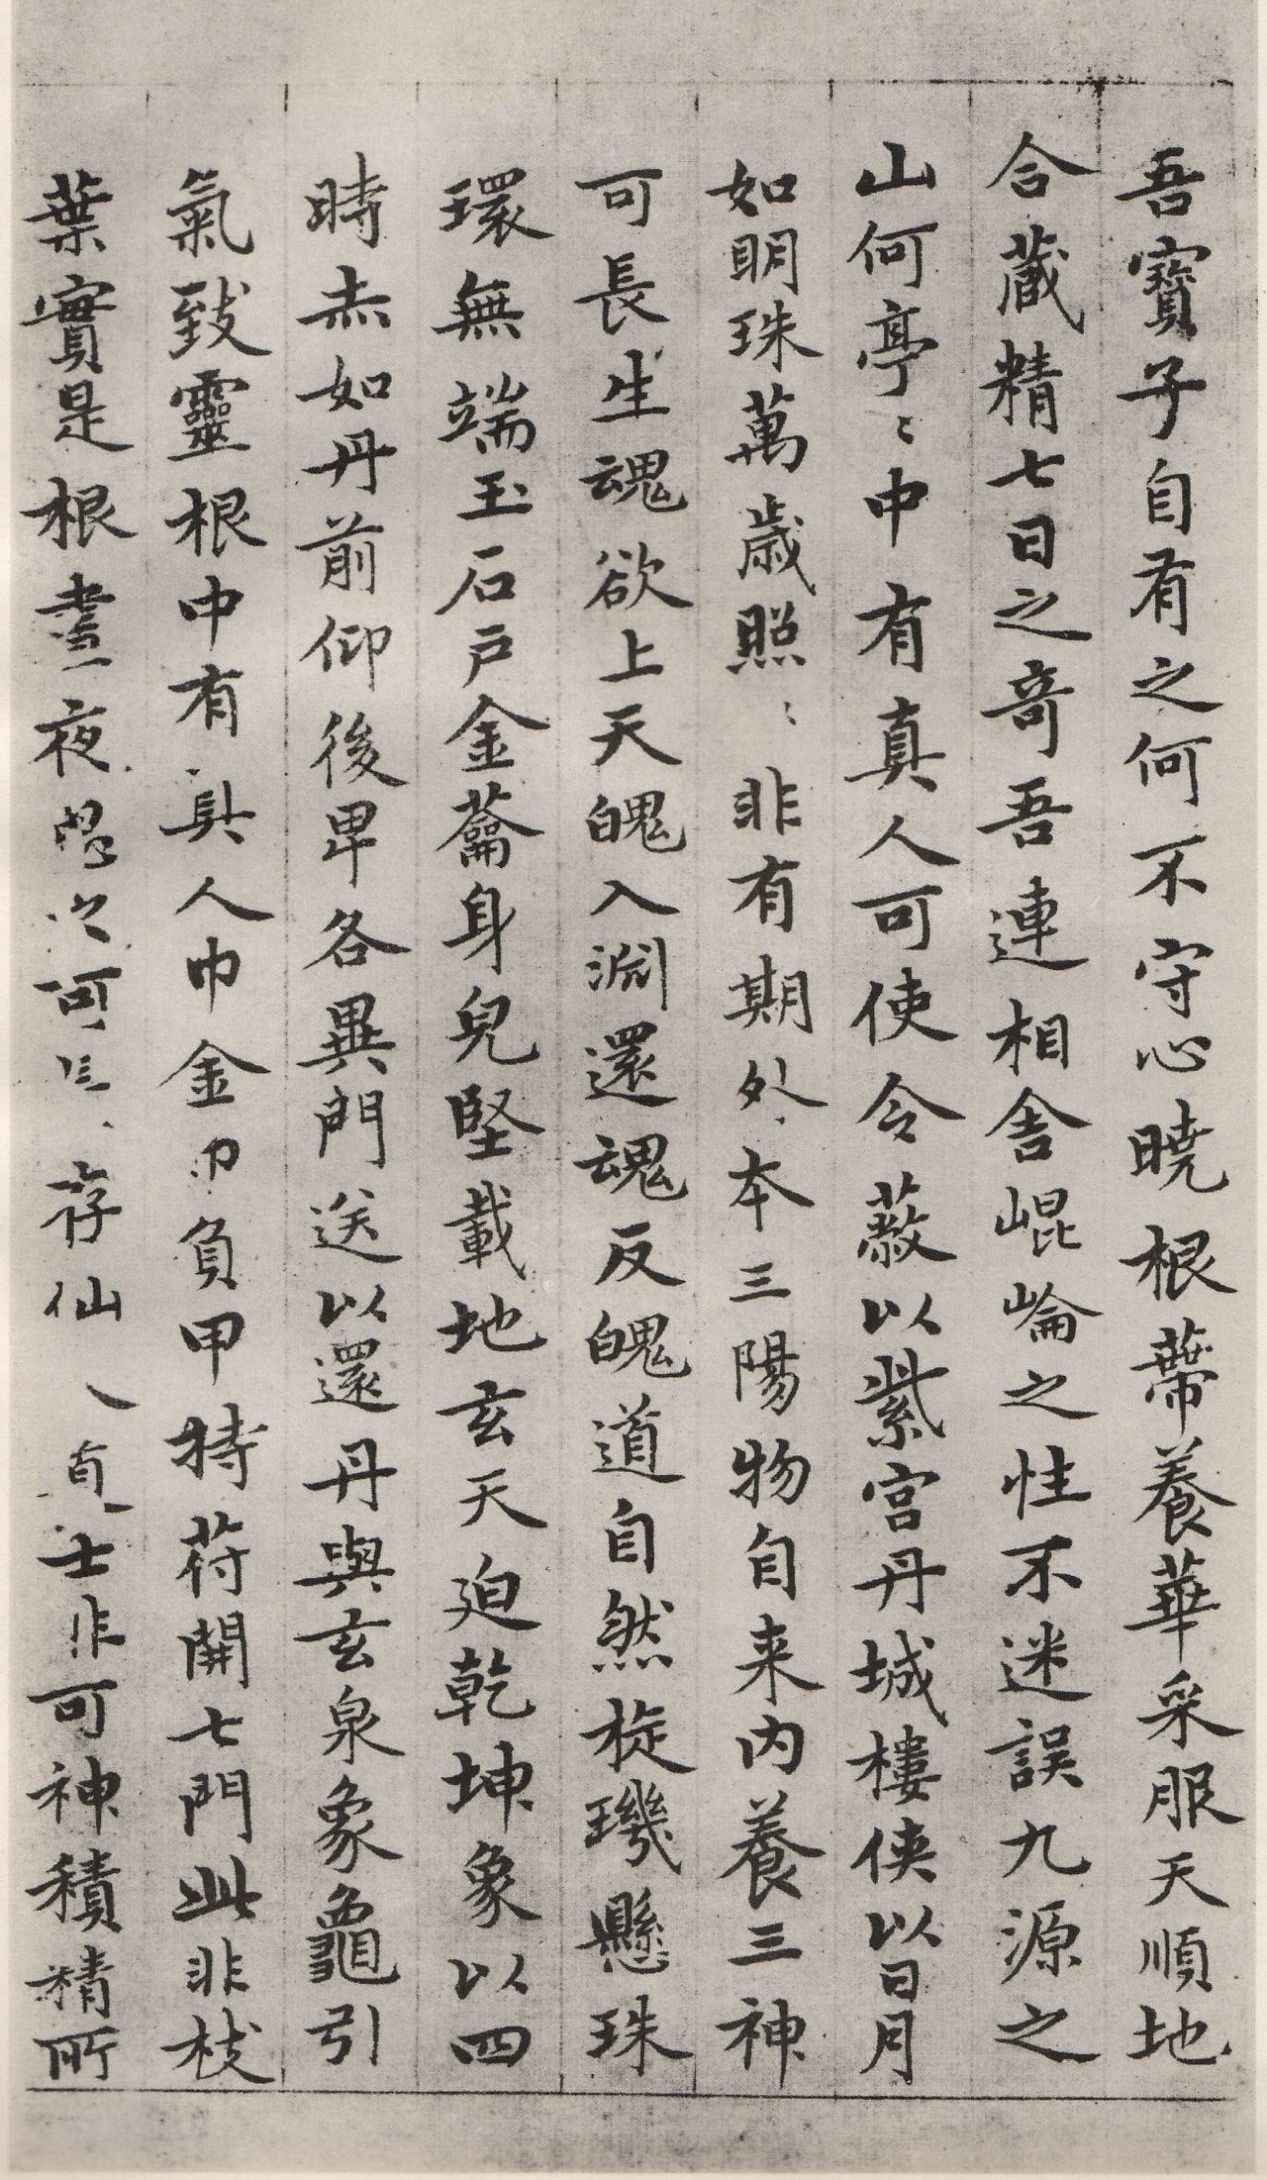 吾寶子自有之何不守心曉根蔕養華采服天順地
合蔵精七日之奇吾連相舎崐崘之性不迷誤九源之
山何亭〻中有真人可使令蔽以紫宫丹城樓侠以日月
如明珠萬歳照〻非有期外本三陽物自来内養三神
可長生魂欲上天魄入淵還魂反魄道自然旋璣懸珠
環無端玉石戸金籥身皃堅載地玄天迫乾坤象以四
時赤如丹前仰後卑各異門送以還丹與玄泉象龜引
氣致靈根中有真人巾金巾負甲持苻開七門此非枝
葉實是根晝夜思之可長存仙人道士非可神積精所